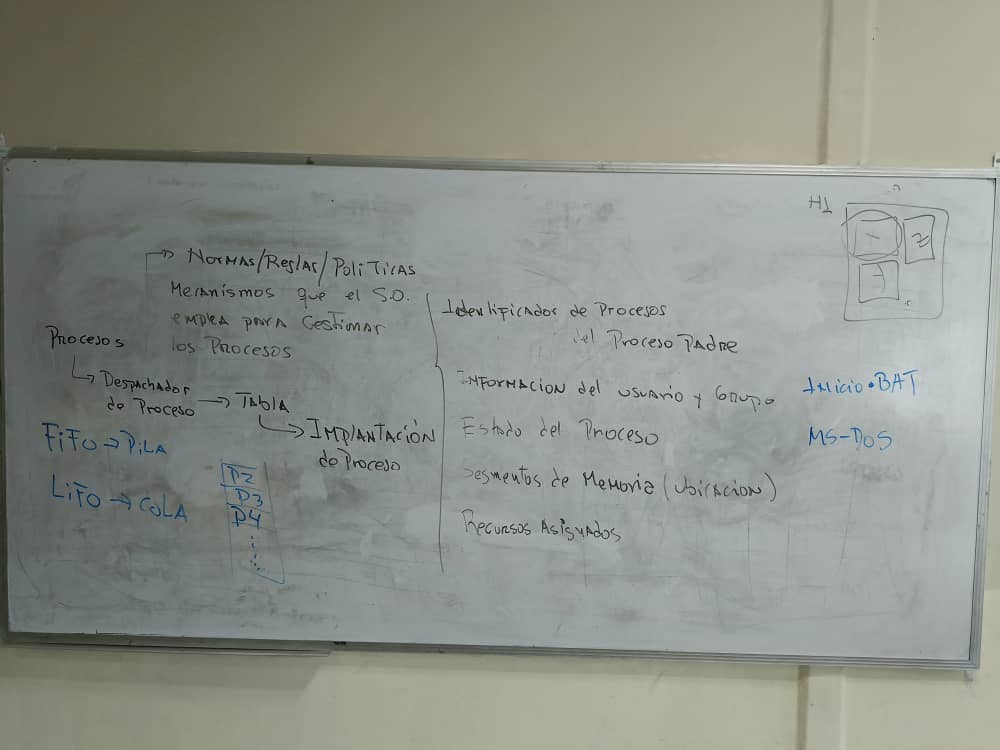 Normas/Reglas/Politicas
Mecanismos que el S.O.
emplea para Gestionar
los Procesos
Procesos
Despachador
de Proceso → Tabla
Implantación
de Proceso
FiFo → PiLA
LiFo → CoLA
P2
P3
P4
Identificador de Procesos
del Proceso Padre
Informacion del usuario y Grupo
Estado del Proceso
Segmentos de Memoria (Ubicacion)
Recursos Asignados
H1
Inicio.BAT
MS-DOS